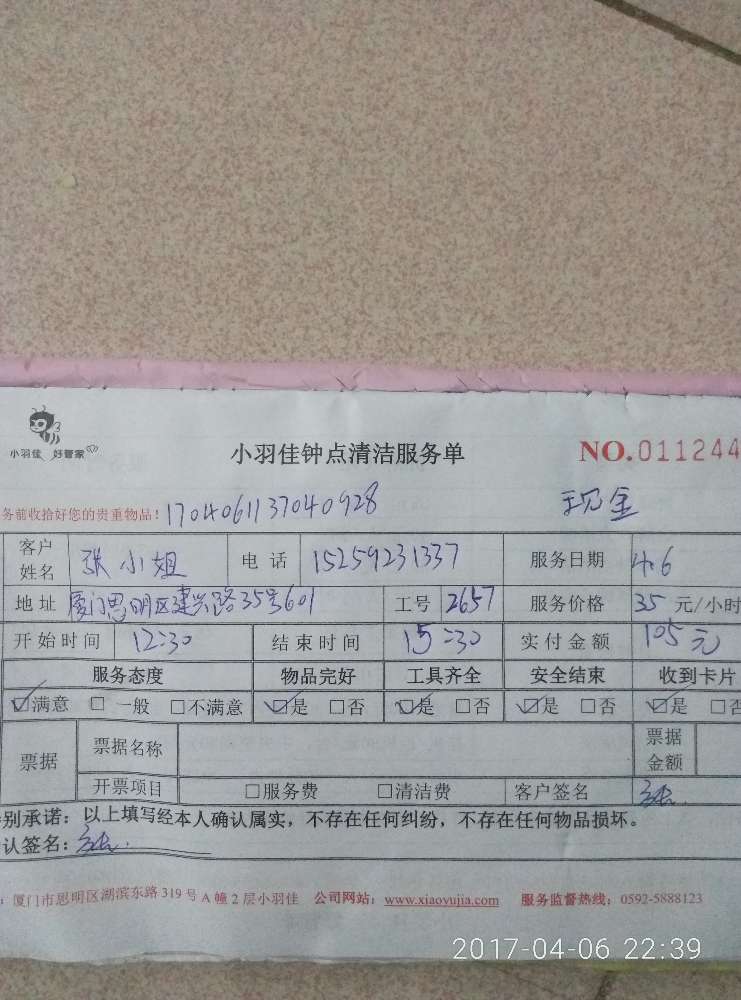 小羽佳 好管家
小羽佳钟点清洁服务单
NO.011244
务前收拾好您的贵重物品！1704061137040928 现金
客户姓名 张小姐 电话 15259231337 服务日期 4.6
地址 厦门思明区建兴路35号601 工号 2657 服务价格 35 元/小时
开始时间 12:30 结束时间 15:30 实付金额 105元
服务态度 物品完好 工具齐全 安全结束 收到卡片
☑满意 □一般 □不满意 ☑是 □否 ☑是 □否 ☑是 □否 ☑是 □否
票据 票据名称 票据金额
开票项目 □服务费 □清洁费 客户签名 张
别承诺：以上填写经本人确认属实，不存在任何纠纷，不存在任何物品损坏。
认签名：张
：厦门市思明区湖滨东路319号A幢2层小羽佳 公司网站：www.xiaoyujia.com 服务监督热线：0592-5888123
2017-04-06 22:39